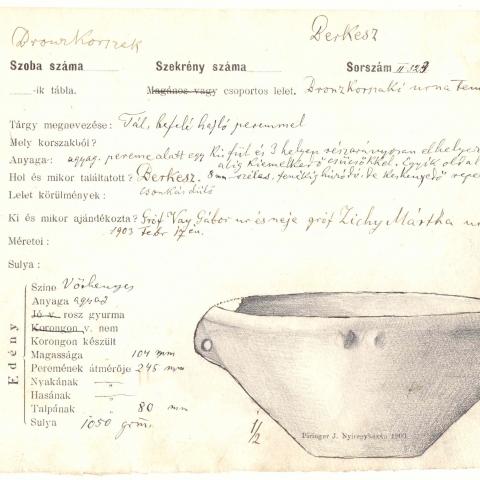 Bronzkorszak
Berkesz
Szoba száma Szekrény száma Sorszám II. 123
-ik tábla. Magános vagy csoportos lelet. Bronzkorszaki urna tem
Tárgy megnevezése: Tál, befelé hajló peremmel
Mely korszakból?
Anyaga: agyag. pereme alatt egy kis fül és 3 helyen részarányosan elhelyez
alig kiemelkedő csücsökkel. Egyik oldal
Hol és mikor találtatott? Berkesz. 8 mm széles, fenékig húzódó, de keskenyedő repe
Lelet körülmények: csonkás dülő
Ki és mikor ajándékozta? Gróf Vay Gábor ur és neje gróf Zichy Mártha u
1903 Febr 17 én.
Méretei:
Sulya:
Edény
Színe Vörhenyes
Anyaga agyag
Jó v. rosz gyurma
Korongon v. nem
Korongon készült
Magassága 104 mm
Peremének átmérője 245 mm
Nyakának "
Hasának "
Talpának " 80 mm
Sulya 1050 grm.
1/2
Piringer J. Nyiregyháza 1903